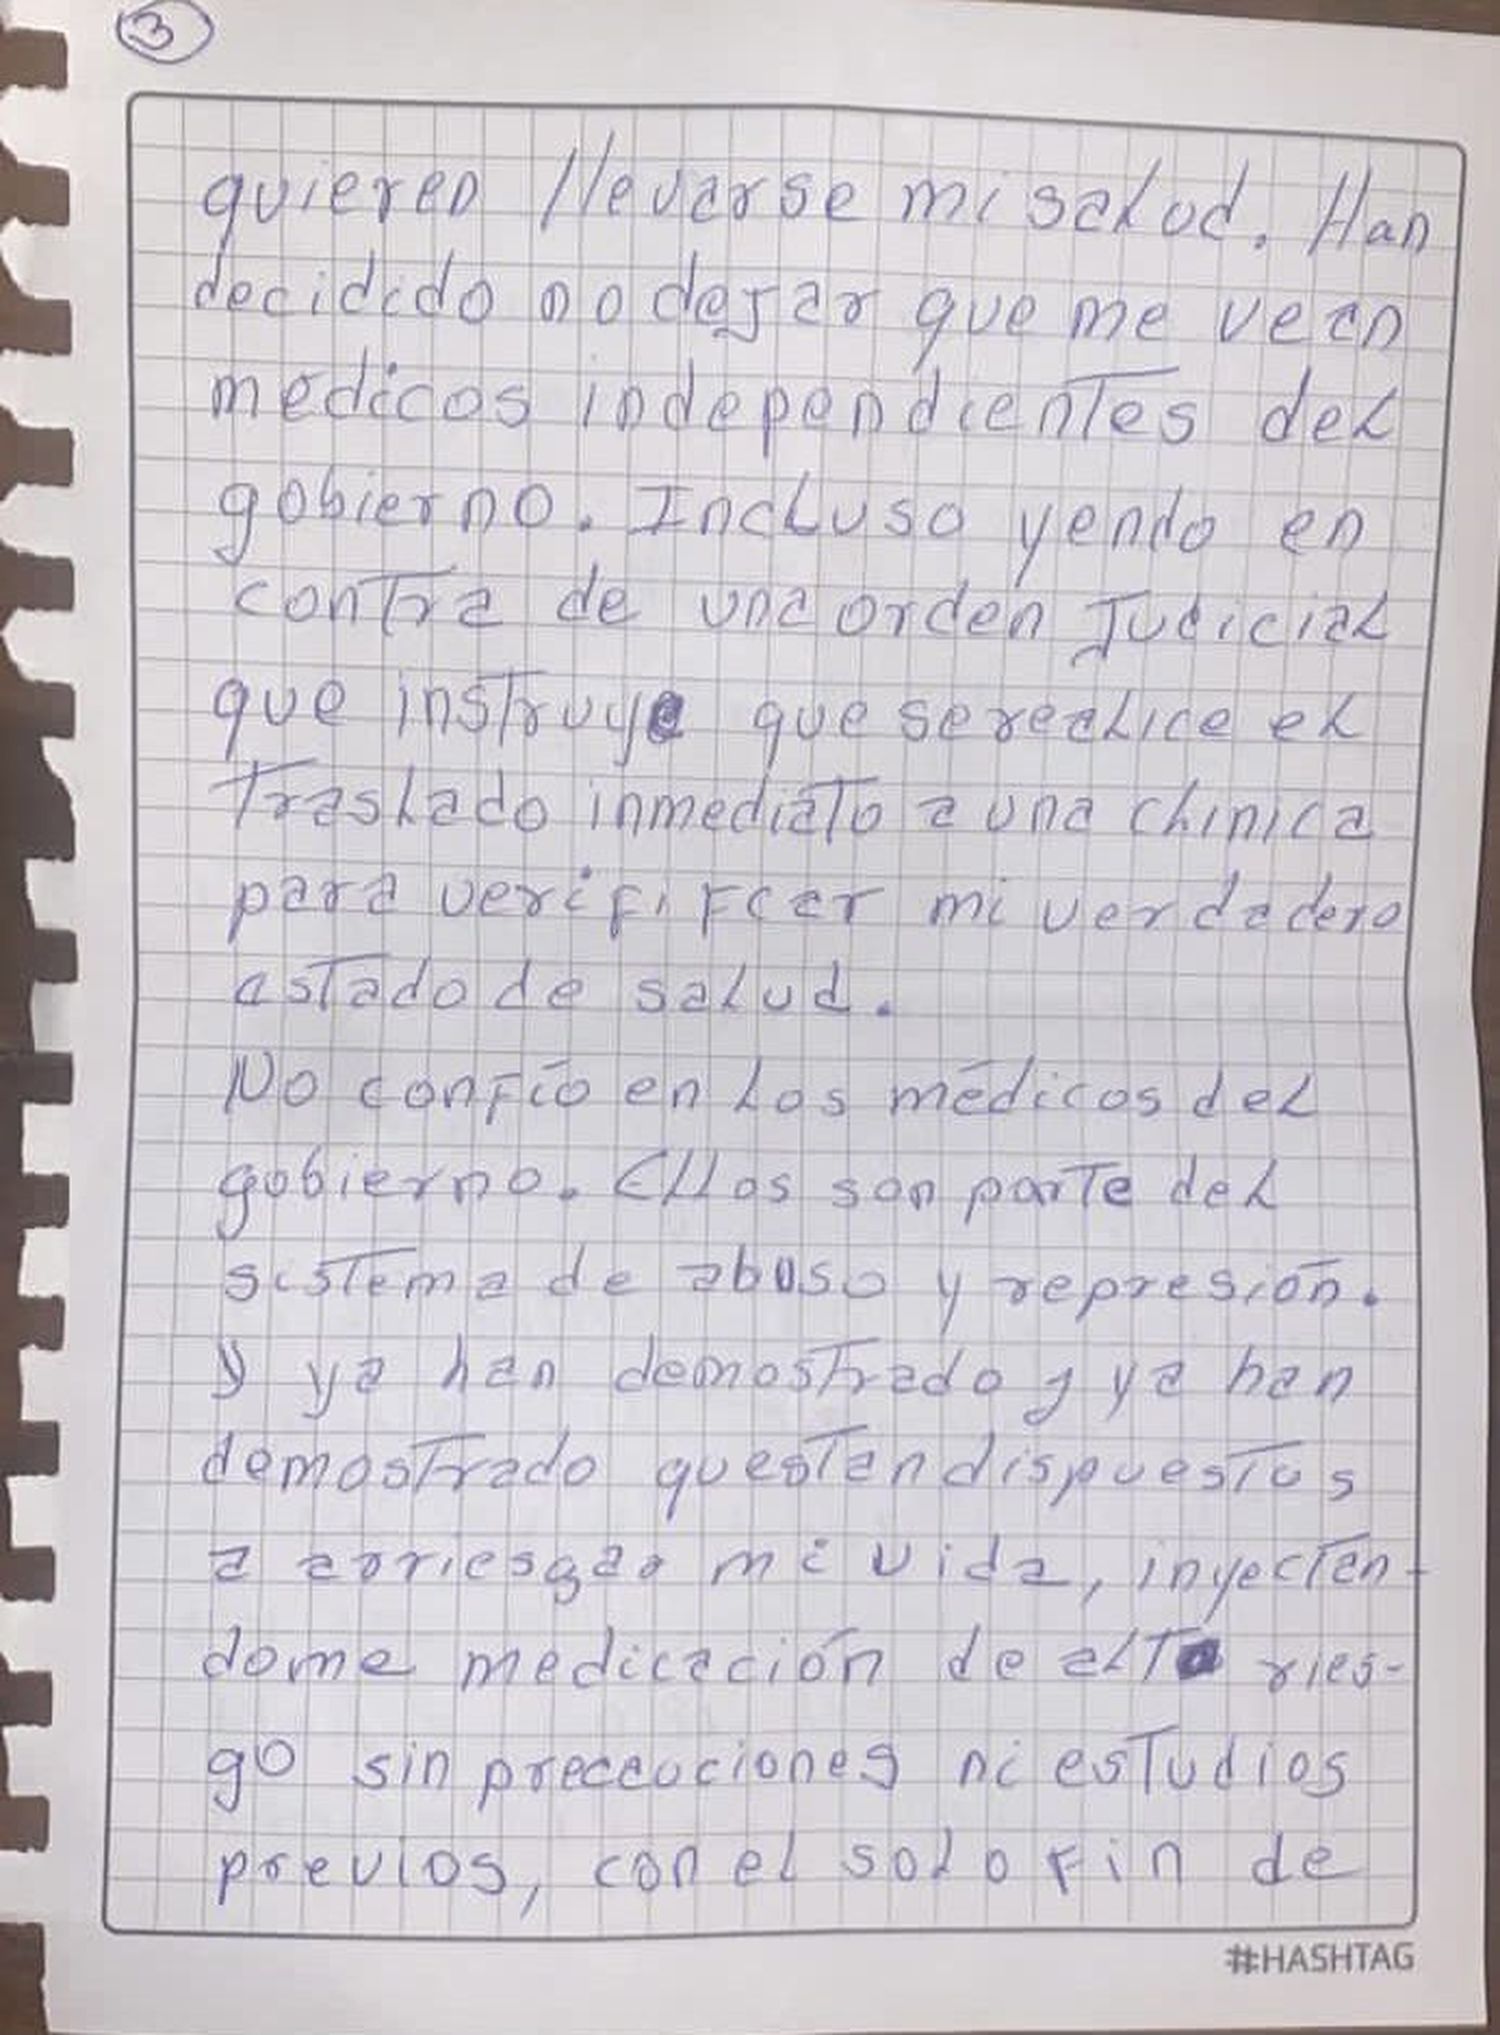 3
quieren llevarse mi salud. Han
decidido no dejar que me vean
médicos independientes del
gobierno. Incluso yendo en
contra de una orden judicial
que instruye que se realice el
traslado inmediato a una clinica
para verififcar mi verdadero
estado de salud.
No confío en los médicos del
gobierno. Ellos son parte del
sistema de abuso y represión.
y ya han demostrado y ya han
demostrado questan dispuestos
a arriesgar mi vida, inyectan-
dome medicación de alto ries-
go sin precauciones ni estudios
previos, con el solo fin de
#HASHTAG